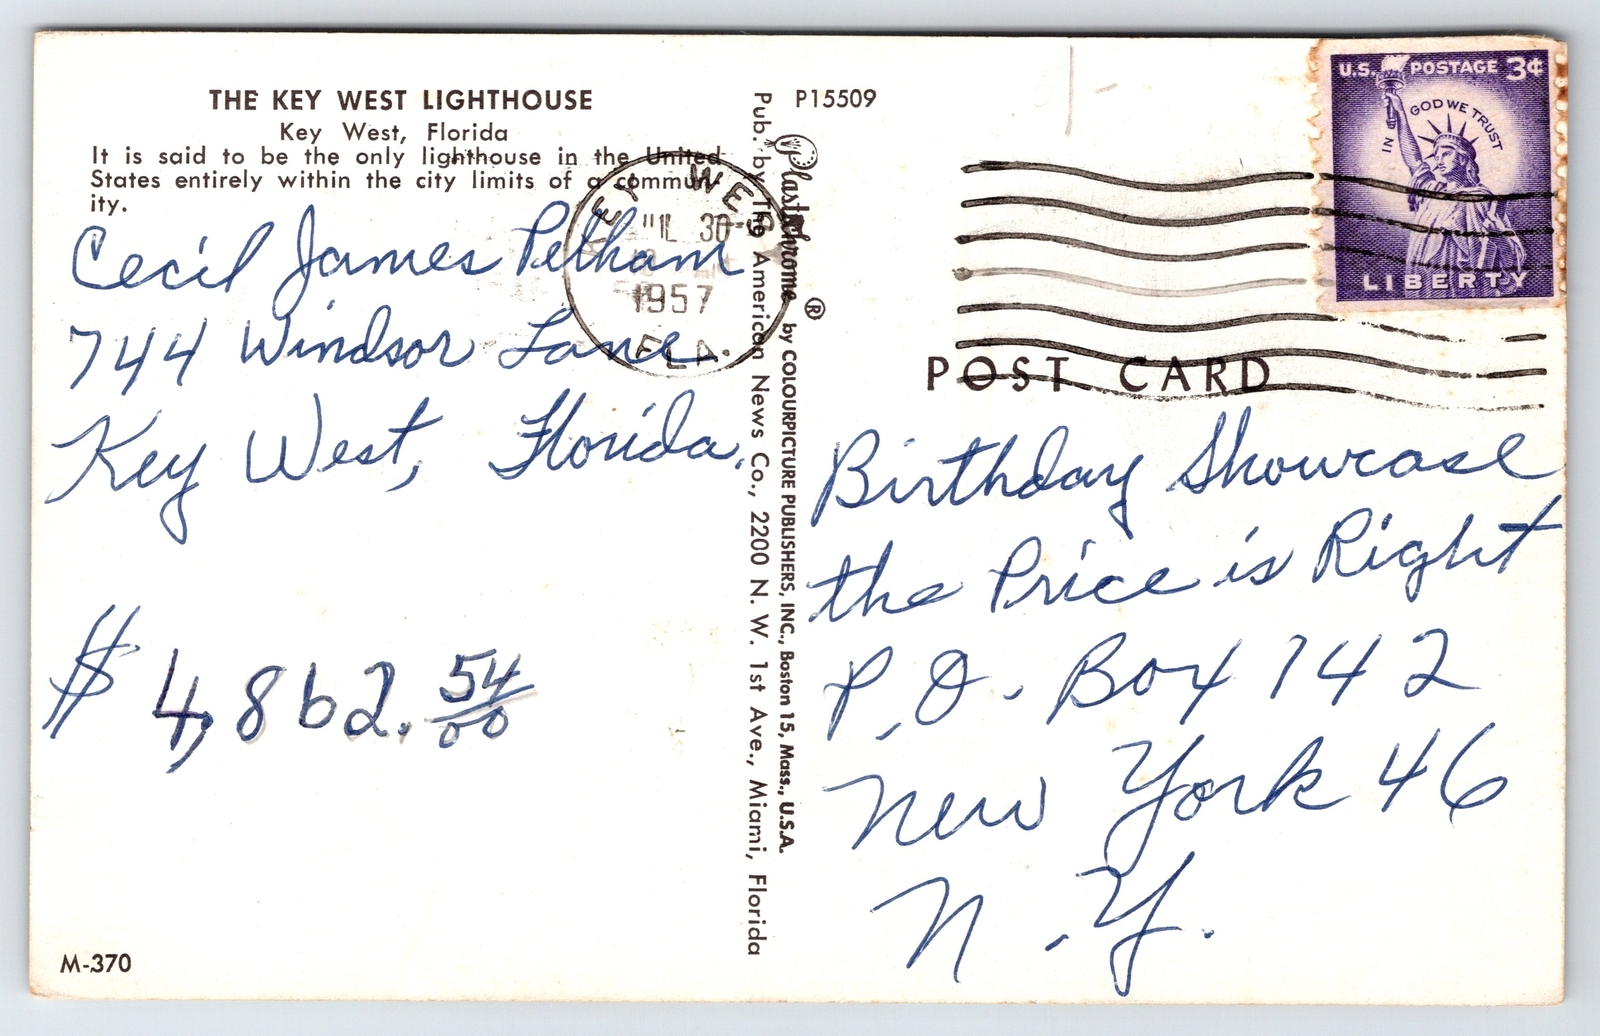 THE KEY WEST LIGHTHOUSE
Key West, Florida
It is said to be the only lighthouse in the United
States entirely within the city limits of a commun-
ity.
Cecil James Pelham
744 Windsor Lane.
Key West, Florida.
$ 4,862. 54/00
M-370
KEY WEST
JUL 30
1957
FLA.
Pub. by The American News Co., 2200 N. W. 1st Ave., Miami, Florida
Plastichrome ® by COLOURPICTURE PUBLISHERS, INC., Boston 15, Mass., U.S.A.
P15509
U.S. POSTAGE 3¢
IN GOD WE TRUST
LIBERTY
POST CARD
Birthday Showcase
the Price is Right
P.O. Box 142
New York 46
N.Y.